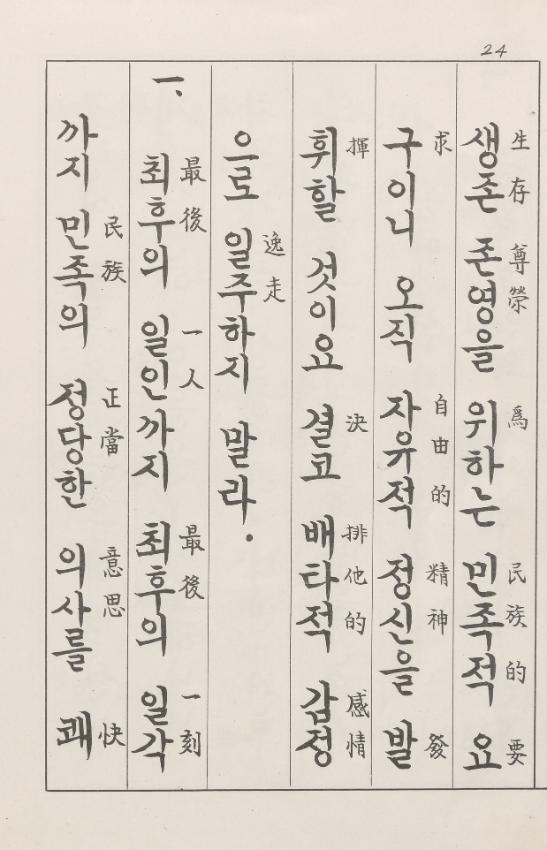 24
生存 尊榮 爲 民族的 要
생존 존영을 위하는 민족적 요
求 自由的 精神 發
구이니 오직 자유적 정신을 발
揮 決 排他的 感情
휘할 것이요 결코 배타적 감정
逸走
으로 일주하지 말라.
最後 一人 最後 一刻
一、 최후의 일인까지 최후의 일각
民族 正當 意思 快
까지 민족의 정당한 의사를 쾌